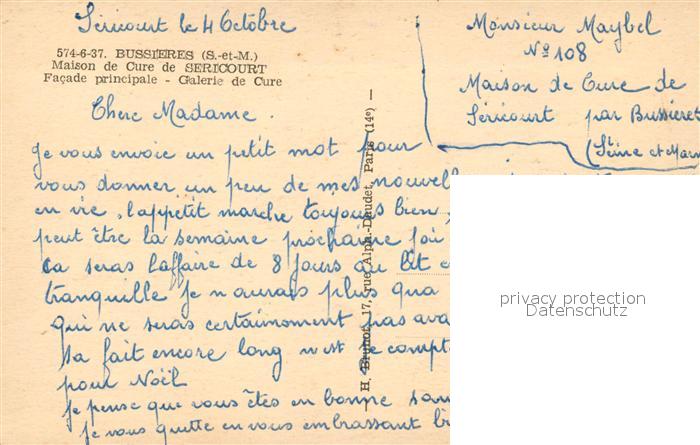 Séricourt le 4 Octobre
574-6-37. BUSSIÈRES (S.-et-M.)
Maison de Cure de SERICOURT
Façade principale - Galerie de Cure
Monsieur Maybel
Nº 108
Maison de Cure de
Séricourt par Bussieret
(Seine et Marn
Chere Madame.
Je vous envoie un petit mot pour
vous donner un peu de mes nouvell
en vie, l'appétit marche toujours bien,
peut être la semaine prochaine j'
ca seras l'affaire de 8 jours au lit
tranquille je n'aurais plus qua
qui ne seras certainement pas ava
sa fait encore long je compt
pour Noël
je pense que vous êtes en bonne san
je vous quitte en vous embrassant bi
— H. Bruneot, 17, rue Alph.-Daudet, Paris (14e) —
privacy protection
Datenschutz